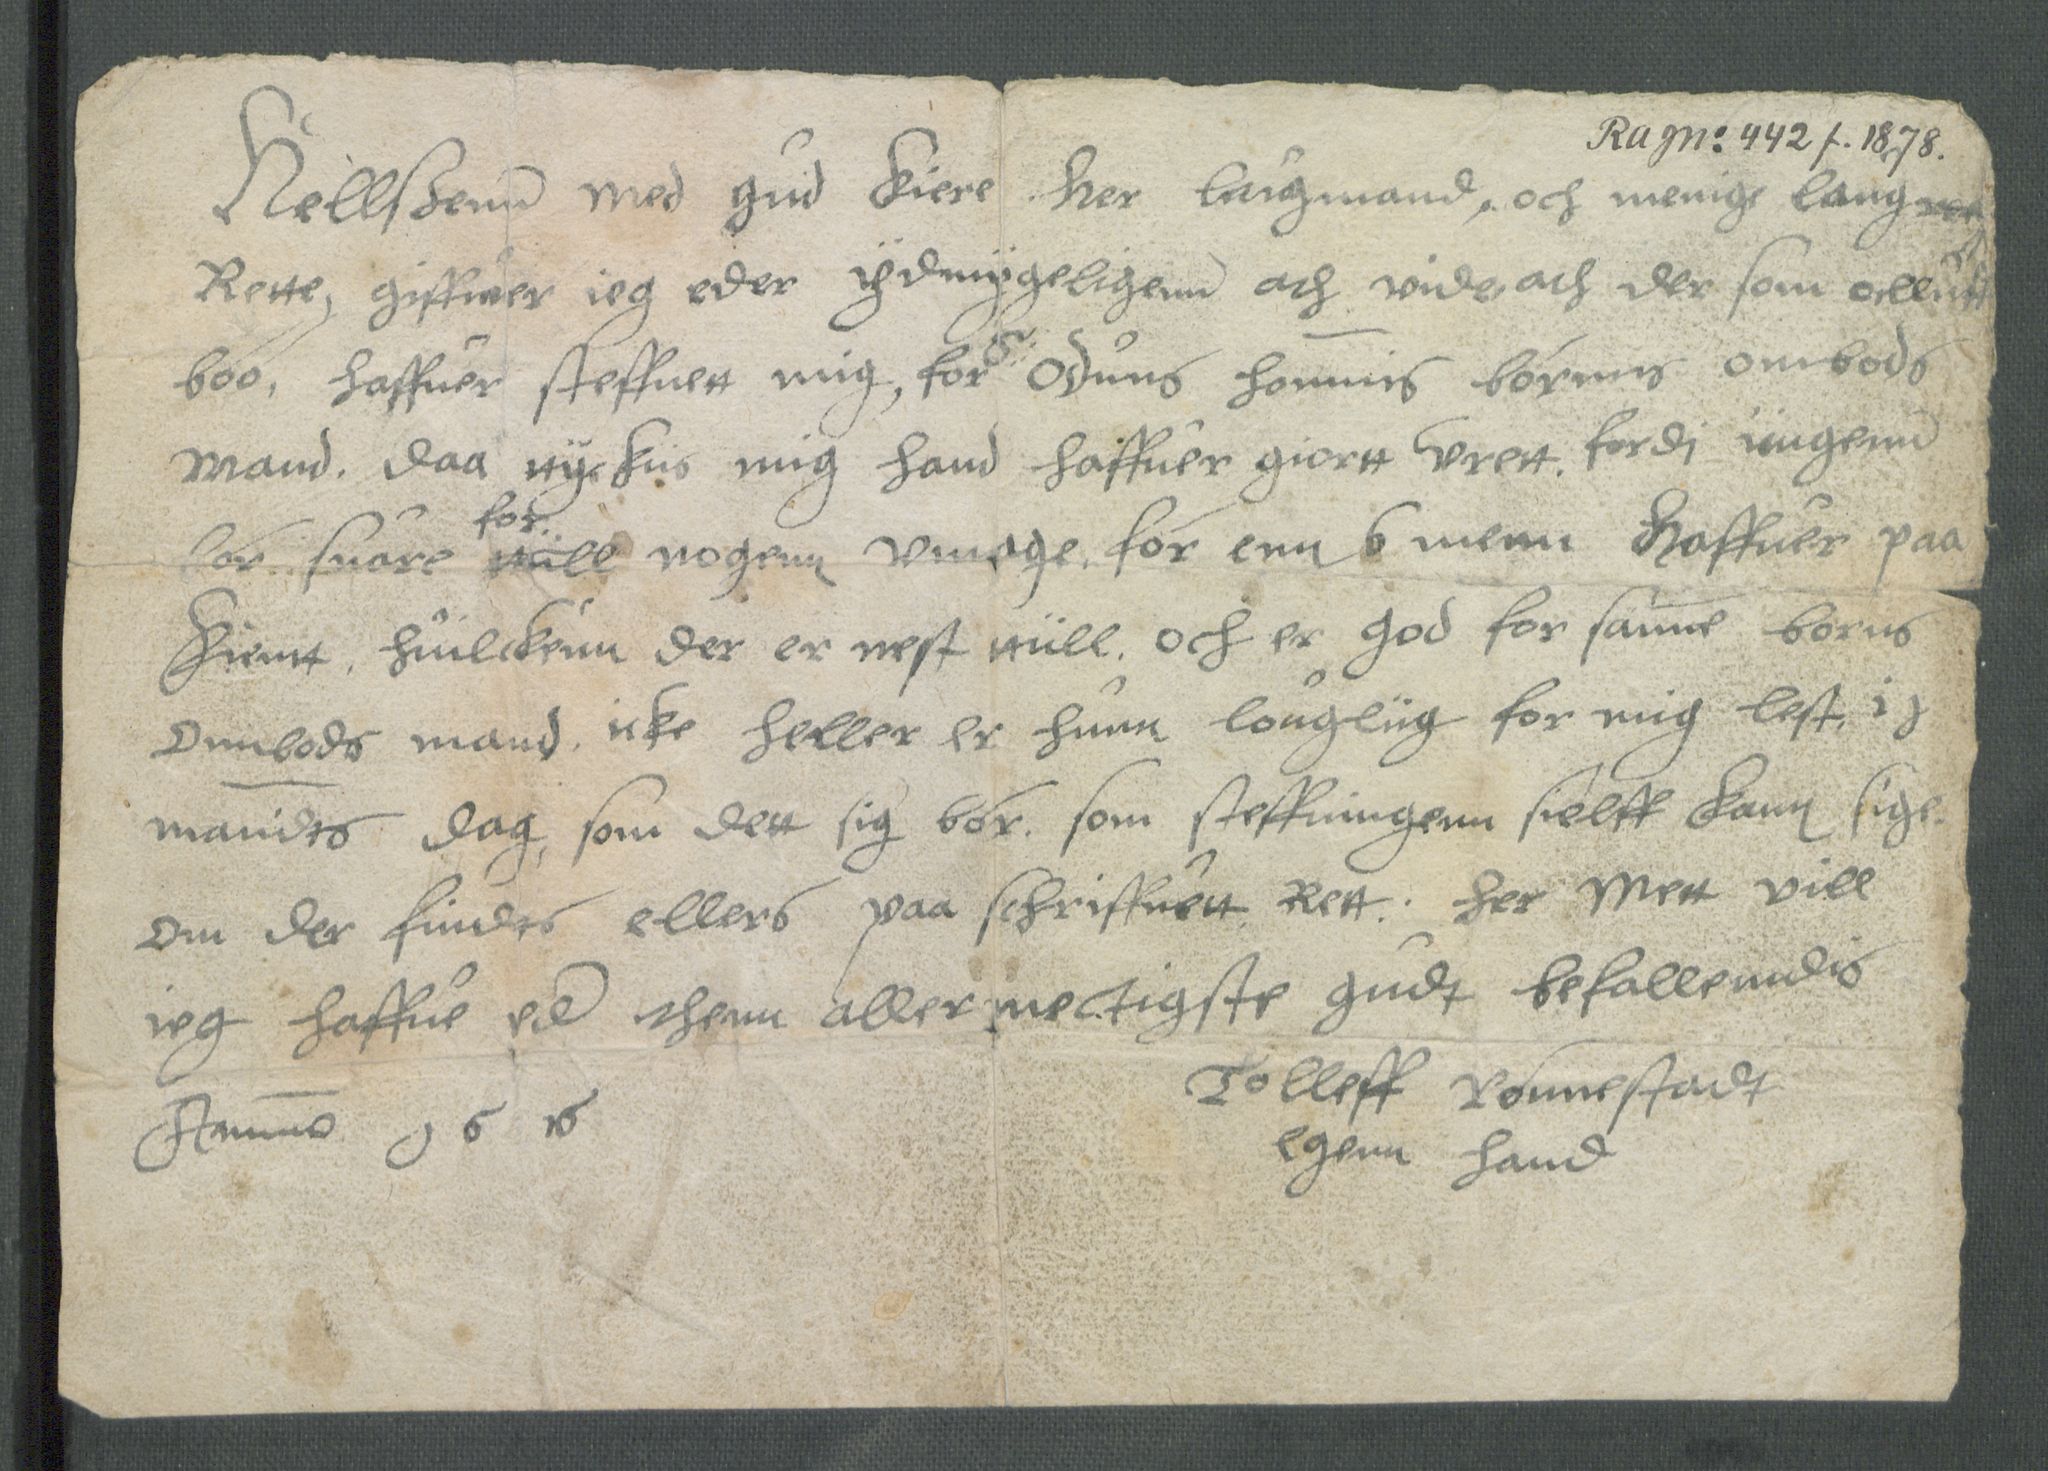 Ra Nº 442 f. 1878.
Hellssenn med gud kiere her laugmand, och menige laug
Rette, giffuer ieg eder ÿdmÿgeligenn ath vide, ath der som
boo, haffuer steffnett mig, for Oduns hannis børnns ombods
mand. daa tÿckis mig hand haffuer giortt Vrett. fordi ingenn
bør suare for nogenn vmøge. før enn 6 menn haffuer paa
kientt. huilckenn der er nest till. och er god for samme børns
ombods mand. icke heller er hunn louglig for mig lest,
mandes dag, som dett sig bør. som steffningenn sielff kann sige.
om der findes ellers paa schriffuett Rett. her mett vill
ieg haffue ed thenn aller mectigste gudt befallendis
Tolleff Rønnestadt
egenn hand
Anno 1616